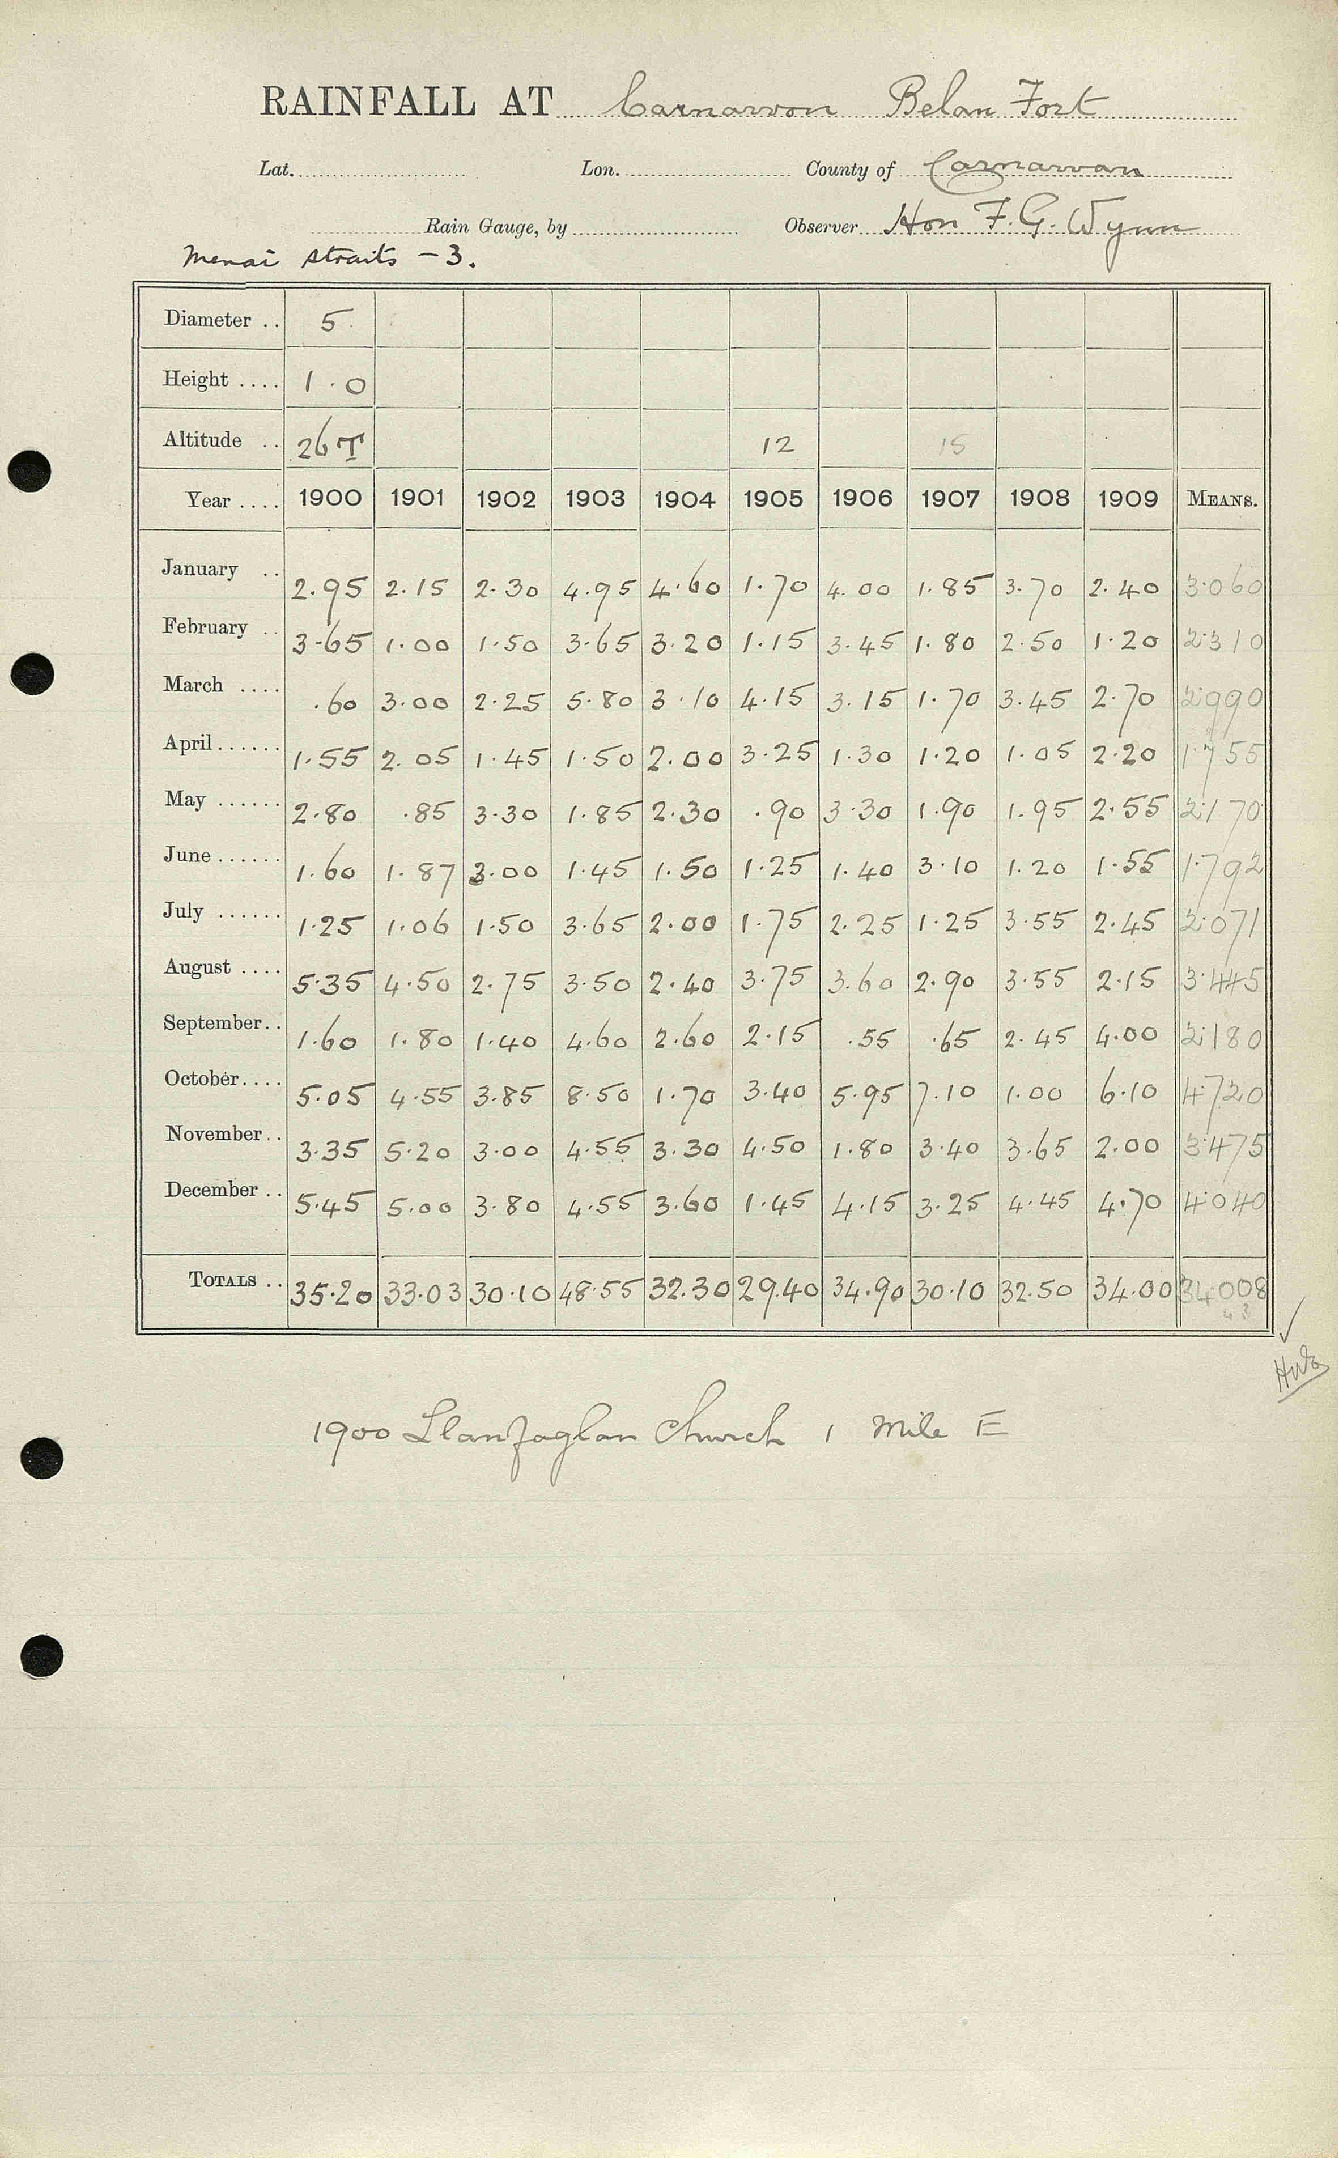 RAINFALL AT Carnarvon Belan Fort
Lat. Lon. County of Carnarvon
Rain Gauge, by Observer Hon F. G. Wynn
Menai Straits - 3.
Diameter .. 5
Height .... 1.0
Altitude .. 26T 12 15
Year .... 1900 1901 1902 1903 1904 1905 1906 1907 1908 1909 MEANS.
January .. 2.95 2.15 2.30 4.95 4.60 1.70 4.00 1.85 3.70 2.40 3.060
February .. 3.65 1.00 1.50 3.65 3.20 1.15 3.45 1.80 2.50 1.20 2.310
March .... .60 3.00 2.25 5.80 3.10 4.15 3.15 1.70 3.45 2.70 2.990
April ...... 1.55 2.05 1.45 1.50 2.00 3.25 1.30 1.20 1.05 2.20 1.755
May ...... 2.80 .85 3.30 1.85 2.30 .90 3.30 1.90 1.95 2.55 2.170
June ...... 1.60 1.87 3.00 1.45 1.50 1.25 1.40 3.10 1.20 1.55 1.792
July ...... 1.25 1.06 1.50 3.65 2.00 1.75 2.25 1.25 3.55 2.45 2.071
August .... 5.35 4.50 2.75 3.50 2.40 3.75 3.60 2.90 3.55 2.15 3.445
September .. 1.60 1.80 1.40 4.60 2.60 2.15 .55 .65 2.45 4.00 2.180
October .... 5.05 4.55 3.85 8.50 1.70 3.40 5.95 7.10 1.00 6.10 4.720
November .. 3.35 5.20 3.00 4.55 3.30 4.50 1.80 3.40 3.65 2.00 3.475
December .. 5.45 5.00 3.80 4.55 3.60 1.45 4.15 3.25 4.45 4.70 4.040
TOTALS .. 35.20 33.03 30.10 48.55 32.30 29.40 34.90 30.10 32.50 34.00 34.008
1900 Llanfaglan Church 1 Mile E